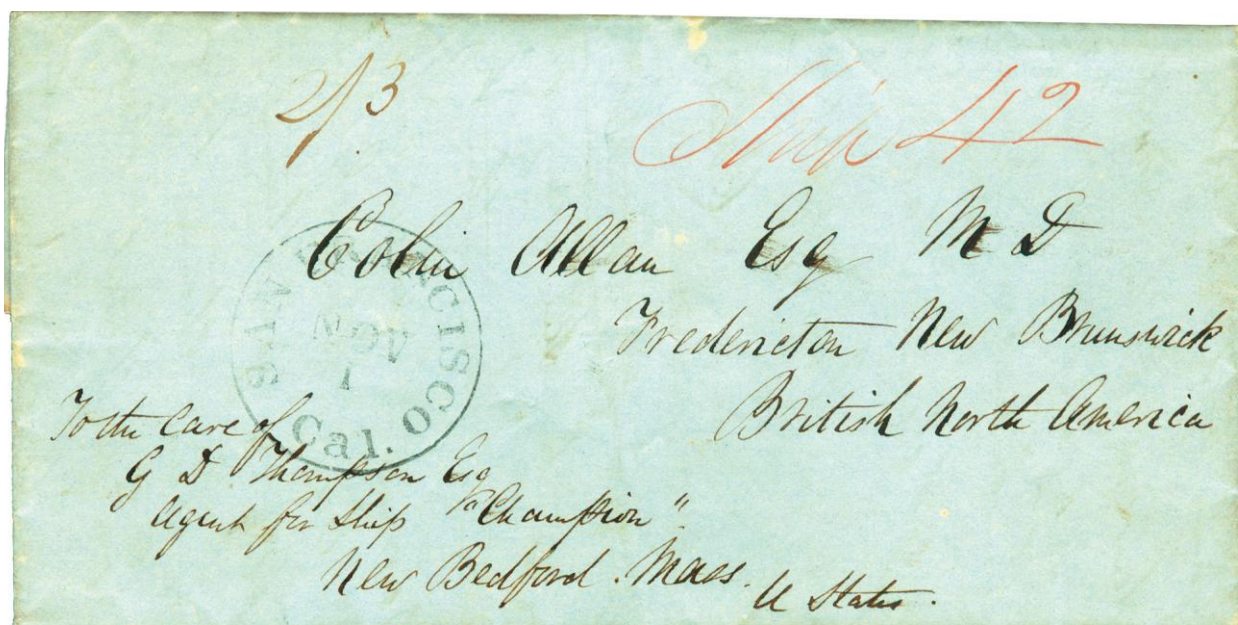 2/3
Ship 42
Colin Allan Esq M D
Fredericton New Brunswick
British North America
SAN FRANCISCO
NOV
1
Cal.
To the Care of
G D Thompson Esq
Agent for Ship "Champion"
New Bedford. Mass.
U States.